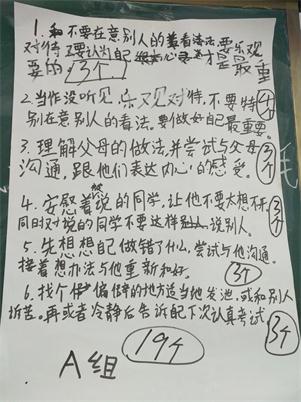 1. 不要在意别人的看法,要乐观
对待 要认为自己 才是最重
要的 3个
2. 当作没听见,乐观对待,不要特 4个
别在意别人的看法。要做好自己最重要。
3. 理解父母的做法,并尝试与父母
沟通,跟他们表达内心的感受。 3个
4. 安慰被说的同学,让他不要太想不开,
同时对说的同学不要这样说别人。 3个
5. 先想想自己做错了什么,尝试与他沟通。
接着想办法与他重新和好。 3个
6. 找个偏僻的地方适当地发泄,或和别人
诉苦。再或者冷静后告诉自己下次认真考试 3个
19个
A组